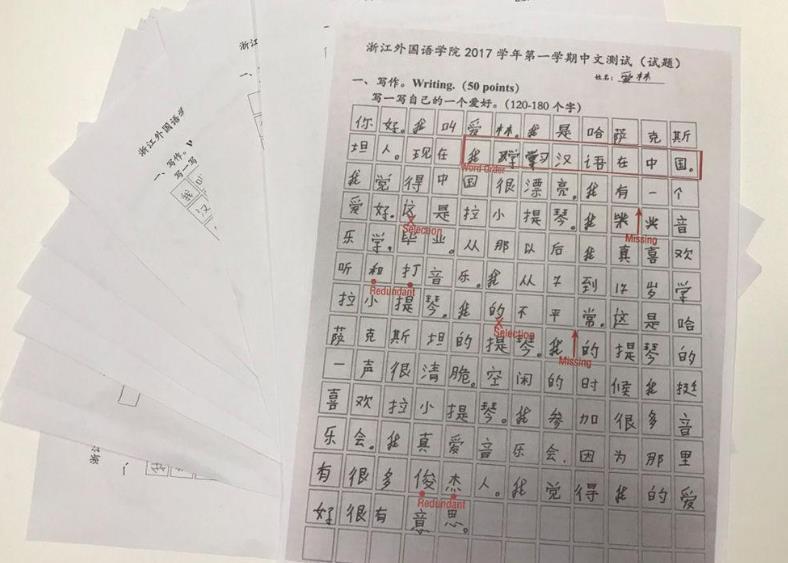 浙江外国语学院 2017 学年第一学期中文测试（试题）
姓名：爱林
一、写作。Writing.（50 points）
写一写自己的一个爱好。（120-180 个字）
你好。我叫爱林。我是哈萨克斯
坦人。现在我学习汉语在中国。
Word order
我觉得中国很漂亮。我有一个
爱好。这是拉小提琴。我 音
Selection
Missing
乐学。毕业。从那以后我真喜欢
听和打音乐。我从7到17岁学
Redundant
拉小提琴。我的不平常。这是哈
Selection
萨克斯坦的提琴。我的提琴的
Missing
一声很清脆。空闲的时候我挺
喜欢拉小提琴。我参加很多音
乐会。我真爱音乐会，因为那里
有很多俊杰人。我觉得我的爱
Redundant
好很有意思。
浙江外国语
一、写作。
写一写
我
汉
浙江